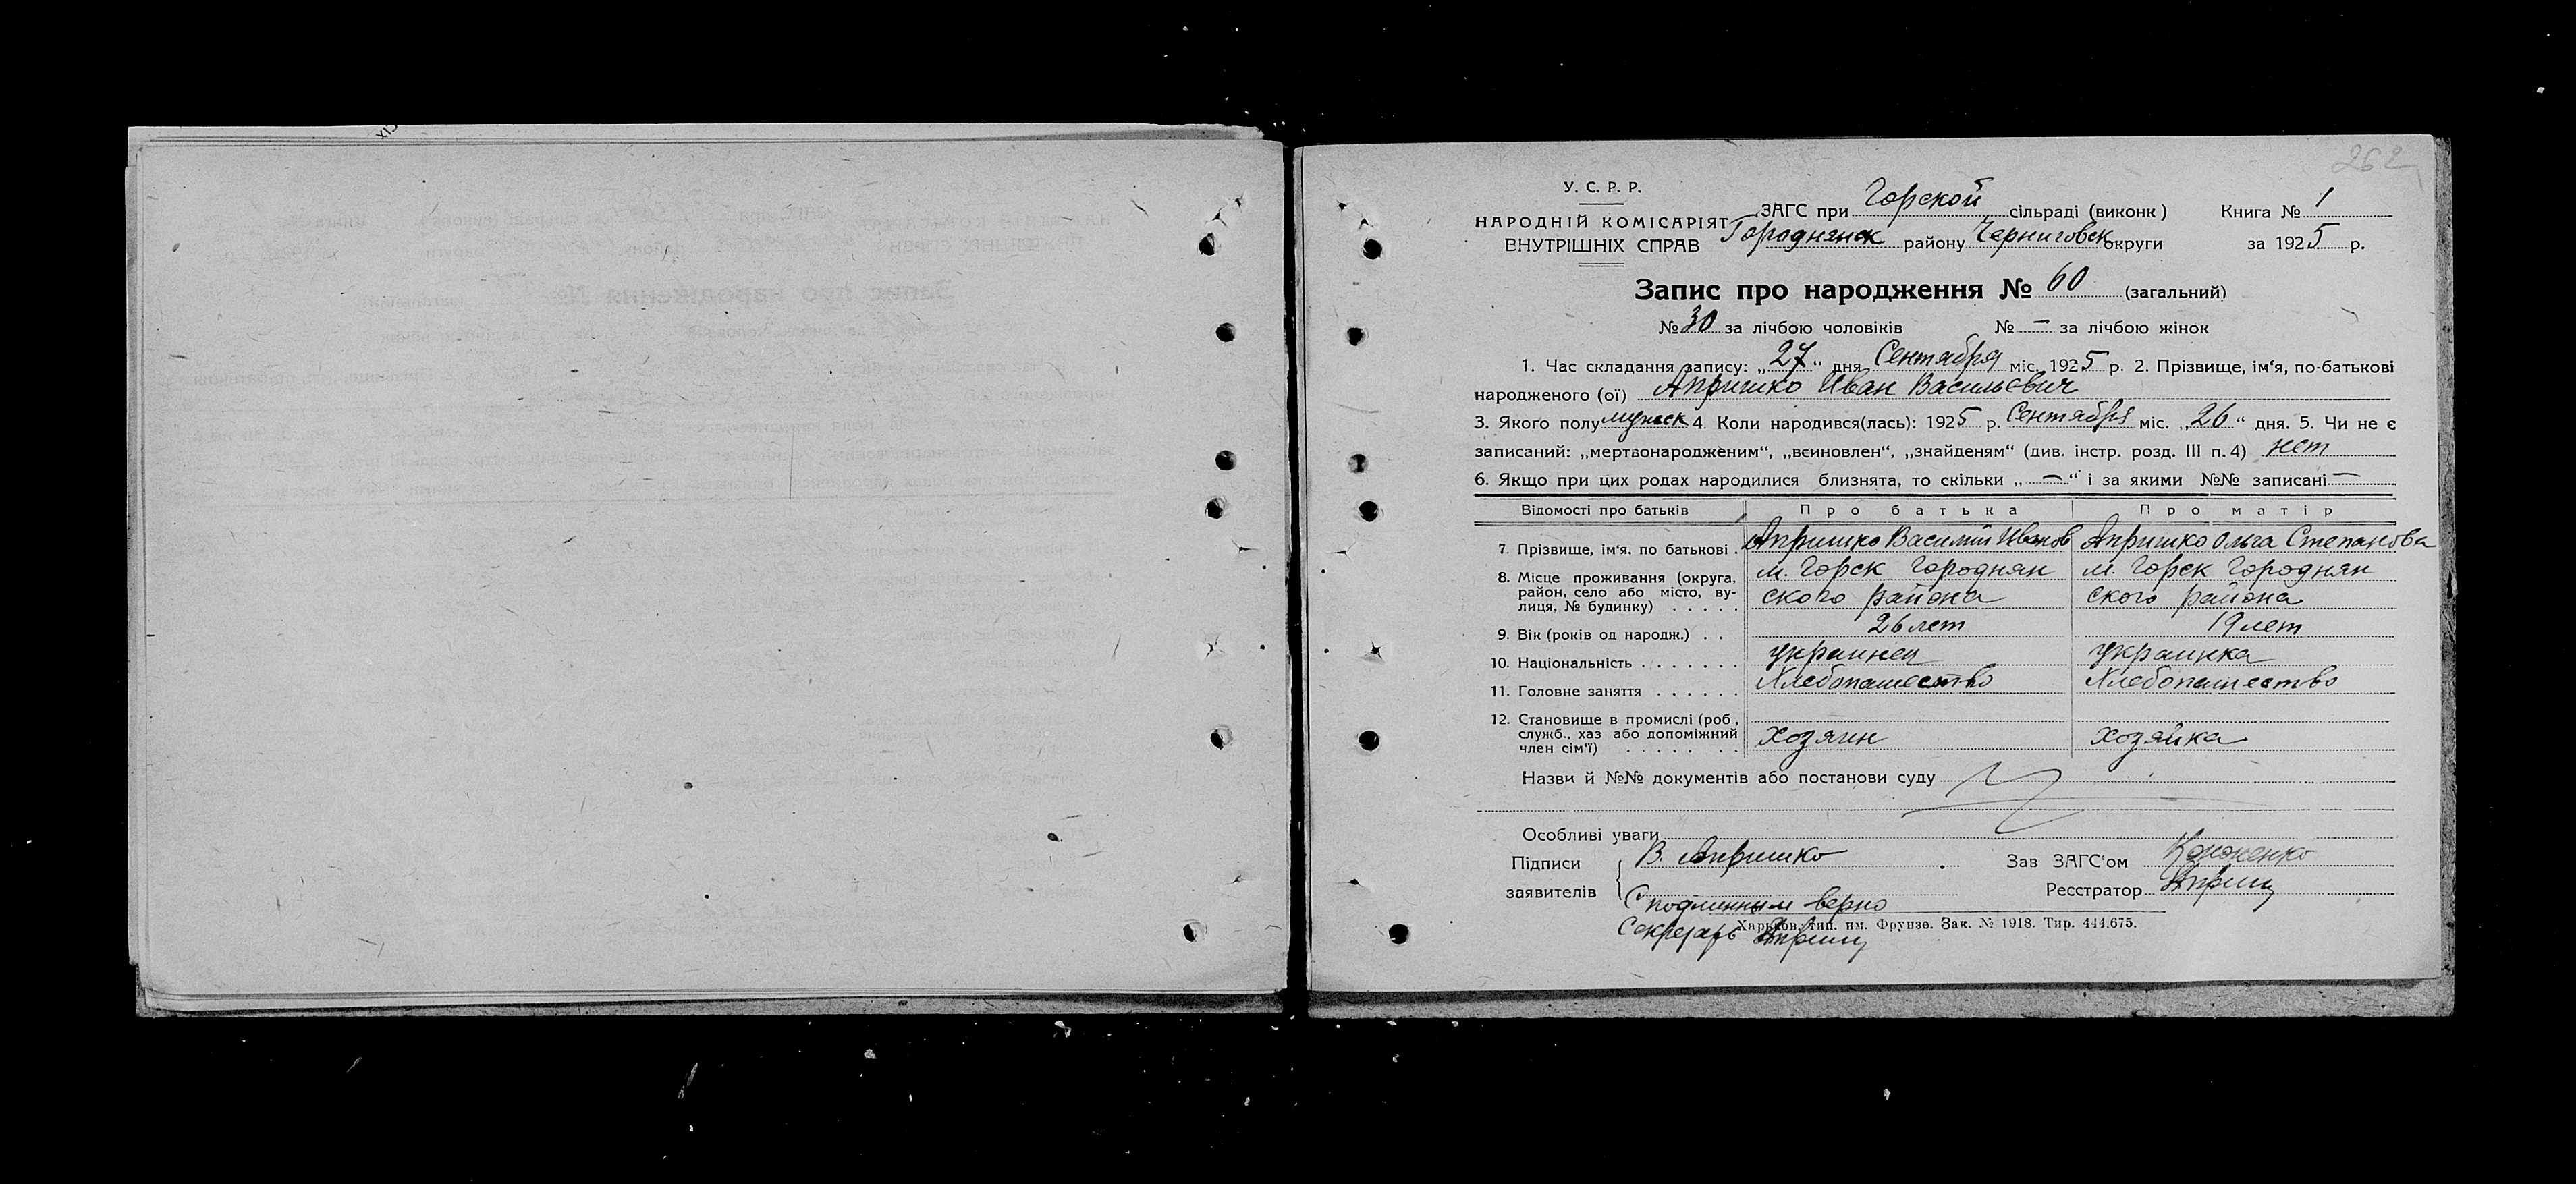 262
У. С. Р. Р.
НАРОДНІЙ КОМІСАРІЯТ
ВНУТРІШНІХ СПРАВ
ЗАГС при Горской сільраді (виконк) Книга № 1
Городнянск району Черниговск округи за 1925 р.
Запис про народження № 60 (загальний)
№ 30 за лічбою чоловіків № — за лічбою жінок
1. Час складання запису: „27“ дня Сентября міс. 1925 р. 2. Прізвище, ім‘я, по-батькові
народженого (ої) Апришко Иван Васильевич
3. Якого полу мужск 4. Коли народився(лась): 1925 р. Сентября міс. „26“ дня. 5. Чи не є
записаний: „мертвонародженим“, „всиновлен“, „знайденям“ (див. інстр. розд. III п. 4) нет
6. Якщо при цих родах народилися близнята, то скільки „—“ і за якими №№ записані —
Відомості про батьків Про батька Про матір
7. Прізвище, ім‘я, по батькові . Апришко Василий Иванов Апришко Ольга Степановва
8. Місце проживання (округа, м. Горск Городнян м. Горск Городнян
район, село або місто, ву- ского района ского района
лиця, № будинку) . . . . .
9. Вік (років од народж.) . . 26 лет 19 лет
10. Національність . . . . . . . украинец украинка
11. Головне заняття . . . . . . Хлебопашество Хлебопашество
12. Становище в промислі (роб.,
служб., хаз або допоміжний Хозяин Хозяйка
член сім‘ї) . . . . . . .
Назви й №№ документів або постанови суду
Особливі уваги
Підписи В. Апришко Зав ЗАГС‘ом
заявителів Реєстратор
С подлинным верно
Секретарь
Харьков, тип. им. Фрунзе. Зак. № 1918. Тир. 444.675.